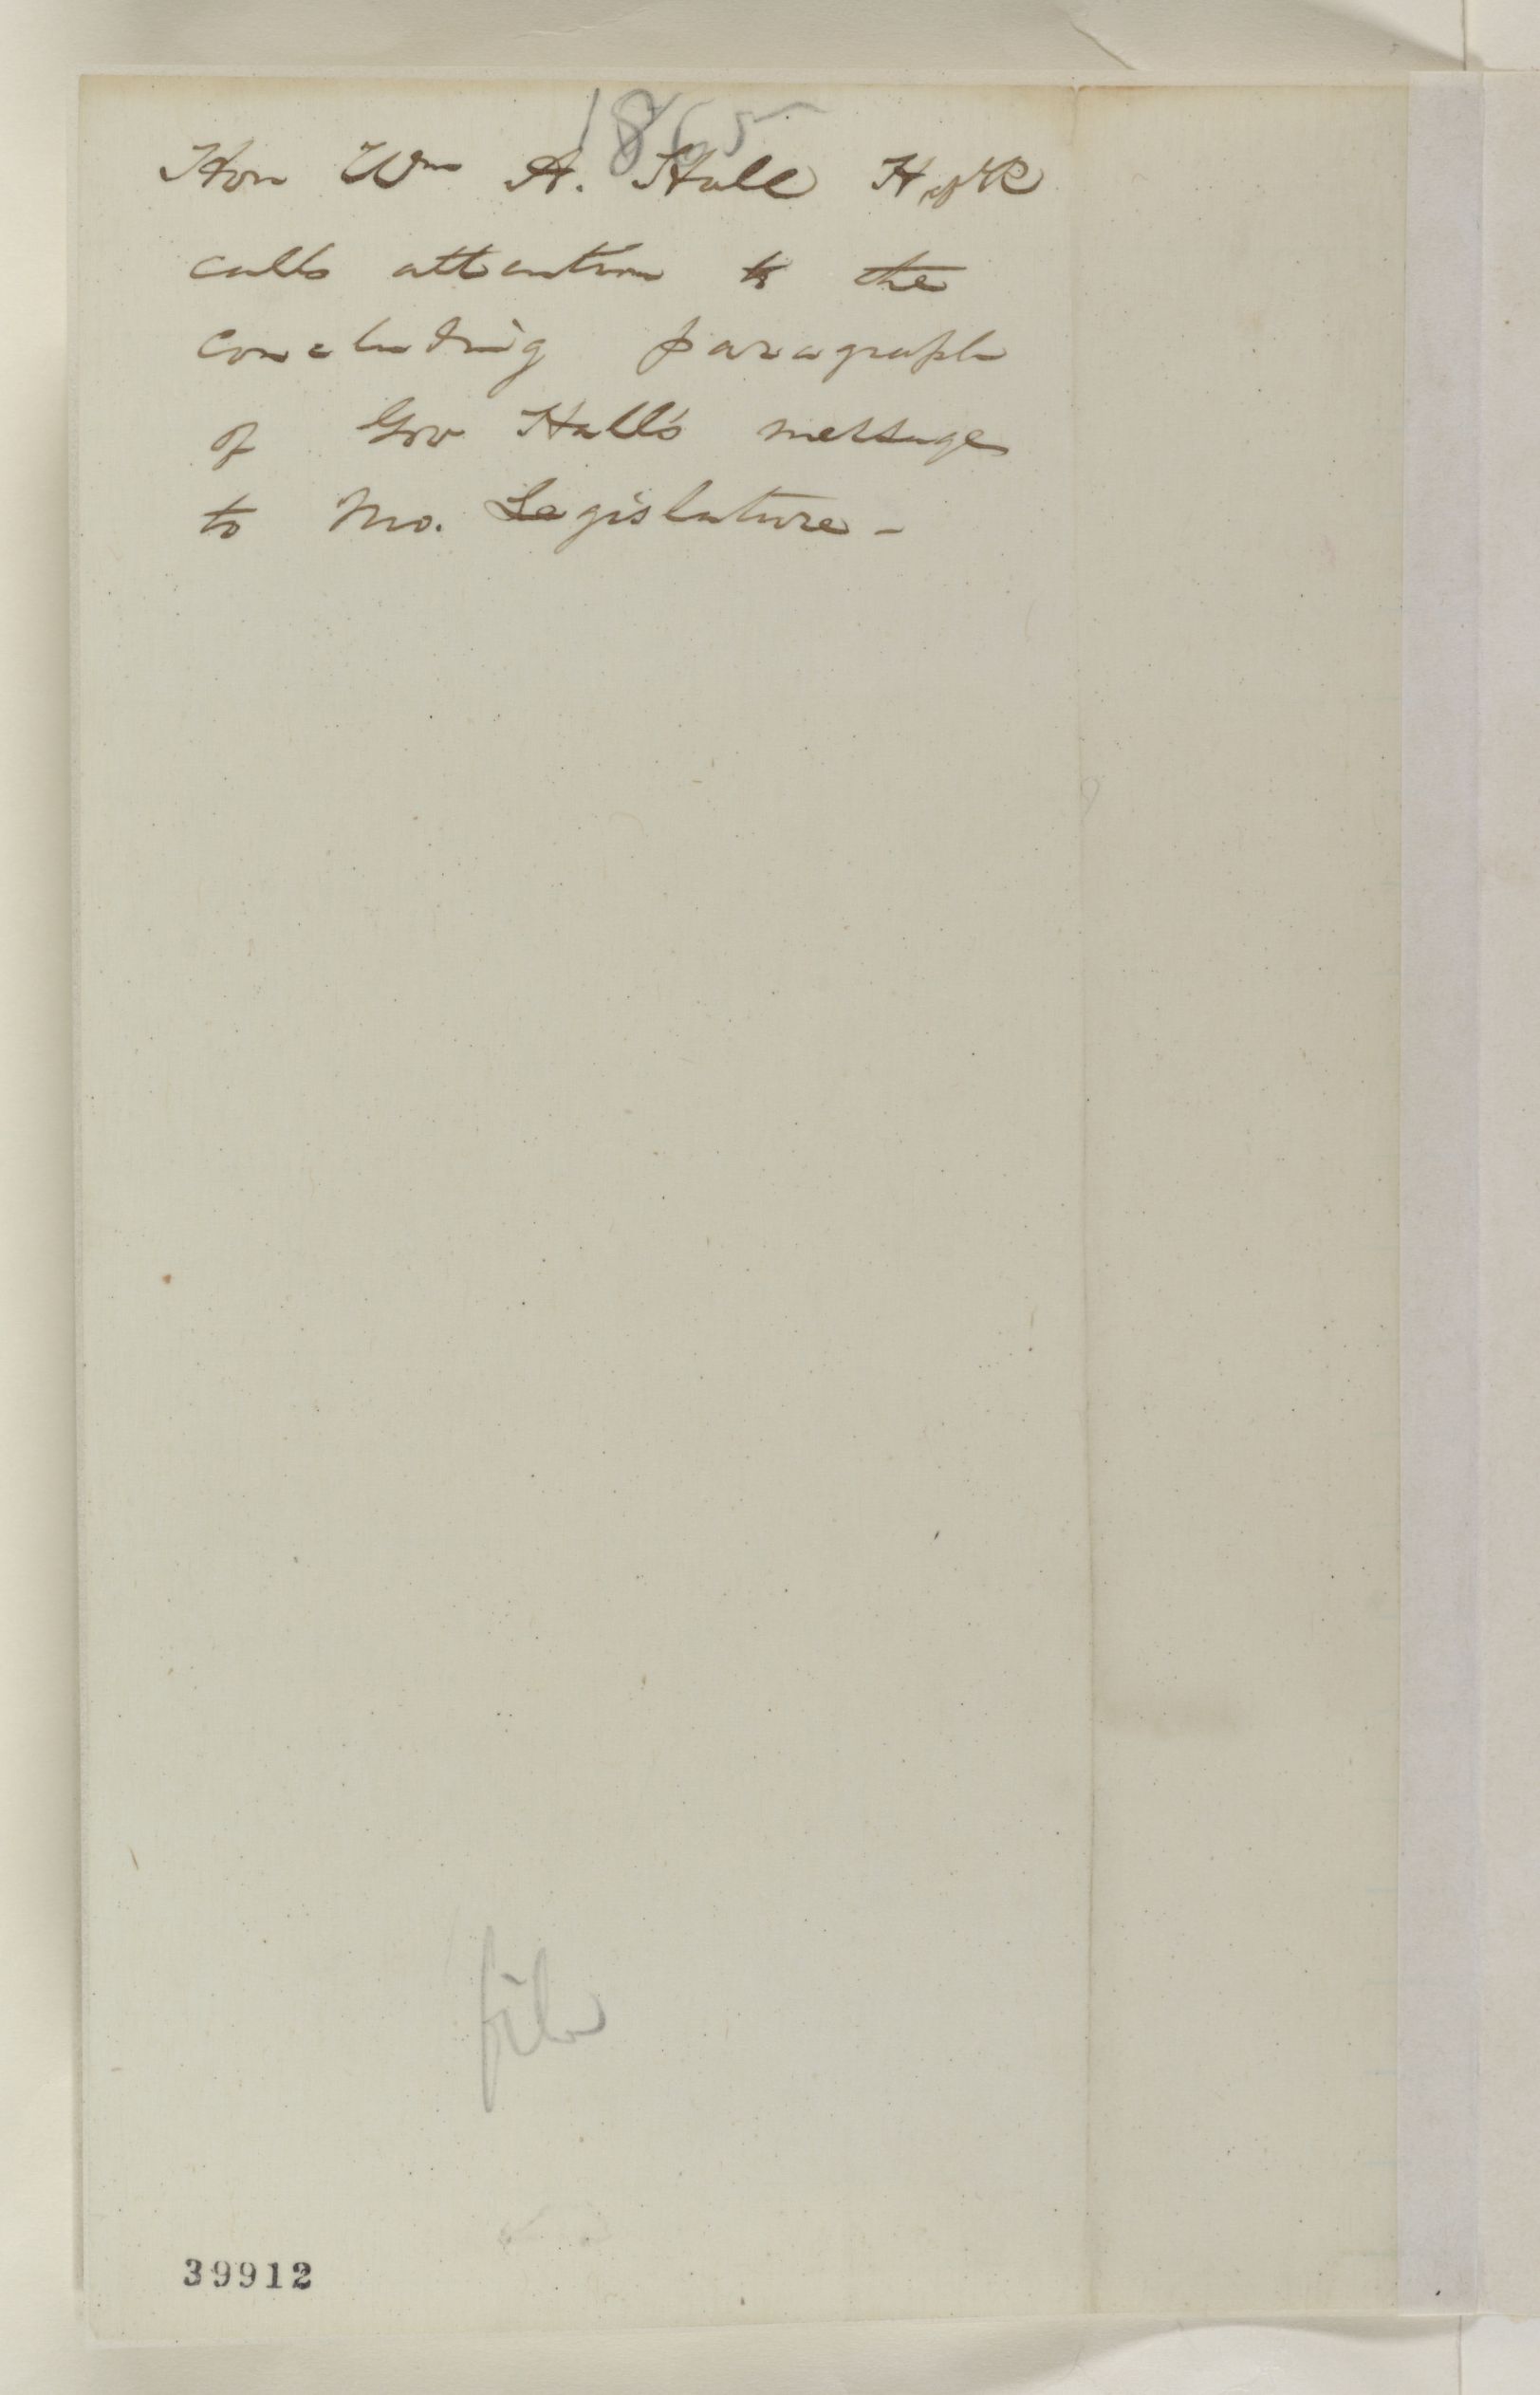 1865
Hon Wm A. Hall H of R
calls attention to the
concluding paragraph
of Gov Hall's message
to Mo. Legislature -
file
39912